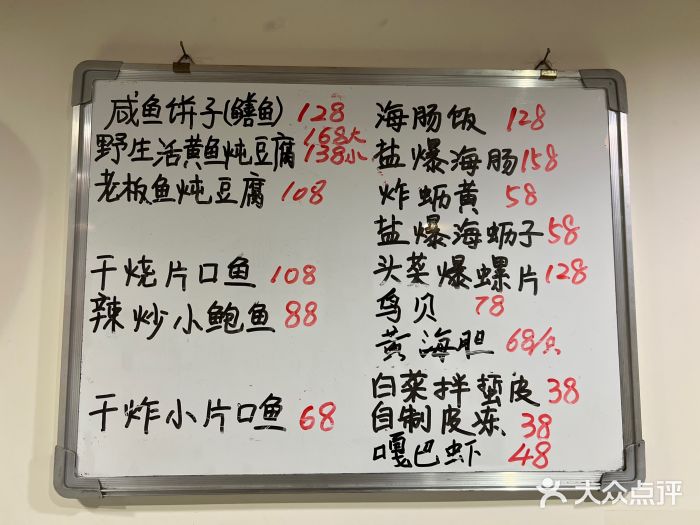 咸鱼饼子(鳝鱼) 128
野生活黄鱼炖豆腐 168大 138小
老板鱼炖豆腐 108
干烧片口鱼 108
辣炒小鲍鱼 88
干炸小片口鱼 68
海肠饭 128
盐爆海肠 158
炸蛎黄 58
盐爆海蛎子 58
头菜爆螺片 128
鸟贝 78
黄海胆 68/只
白菜拌蜇皮 38
自制皮冻 38
嘎巴虾 48
大众点评